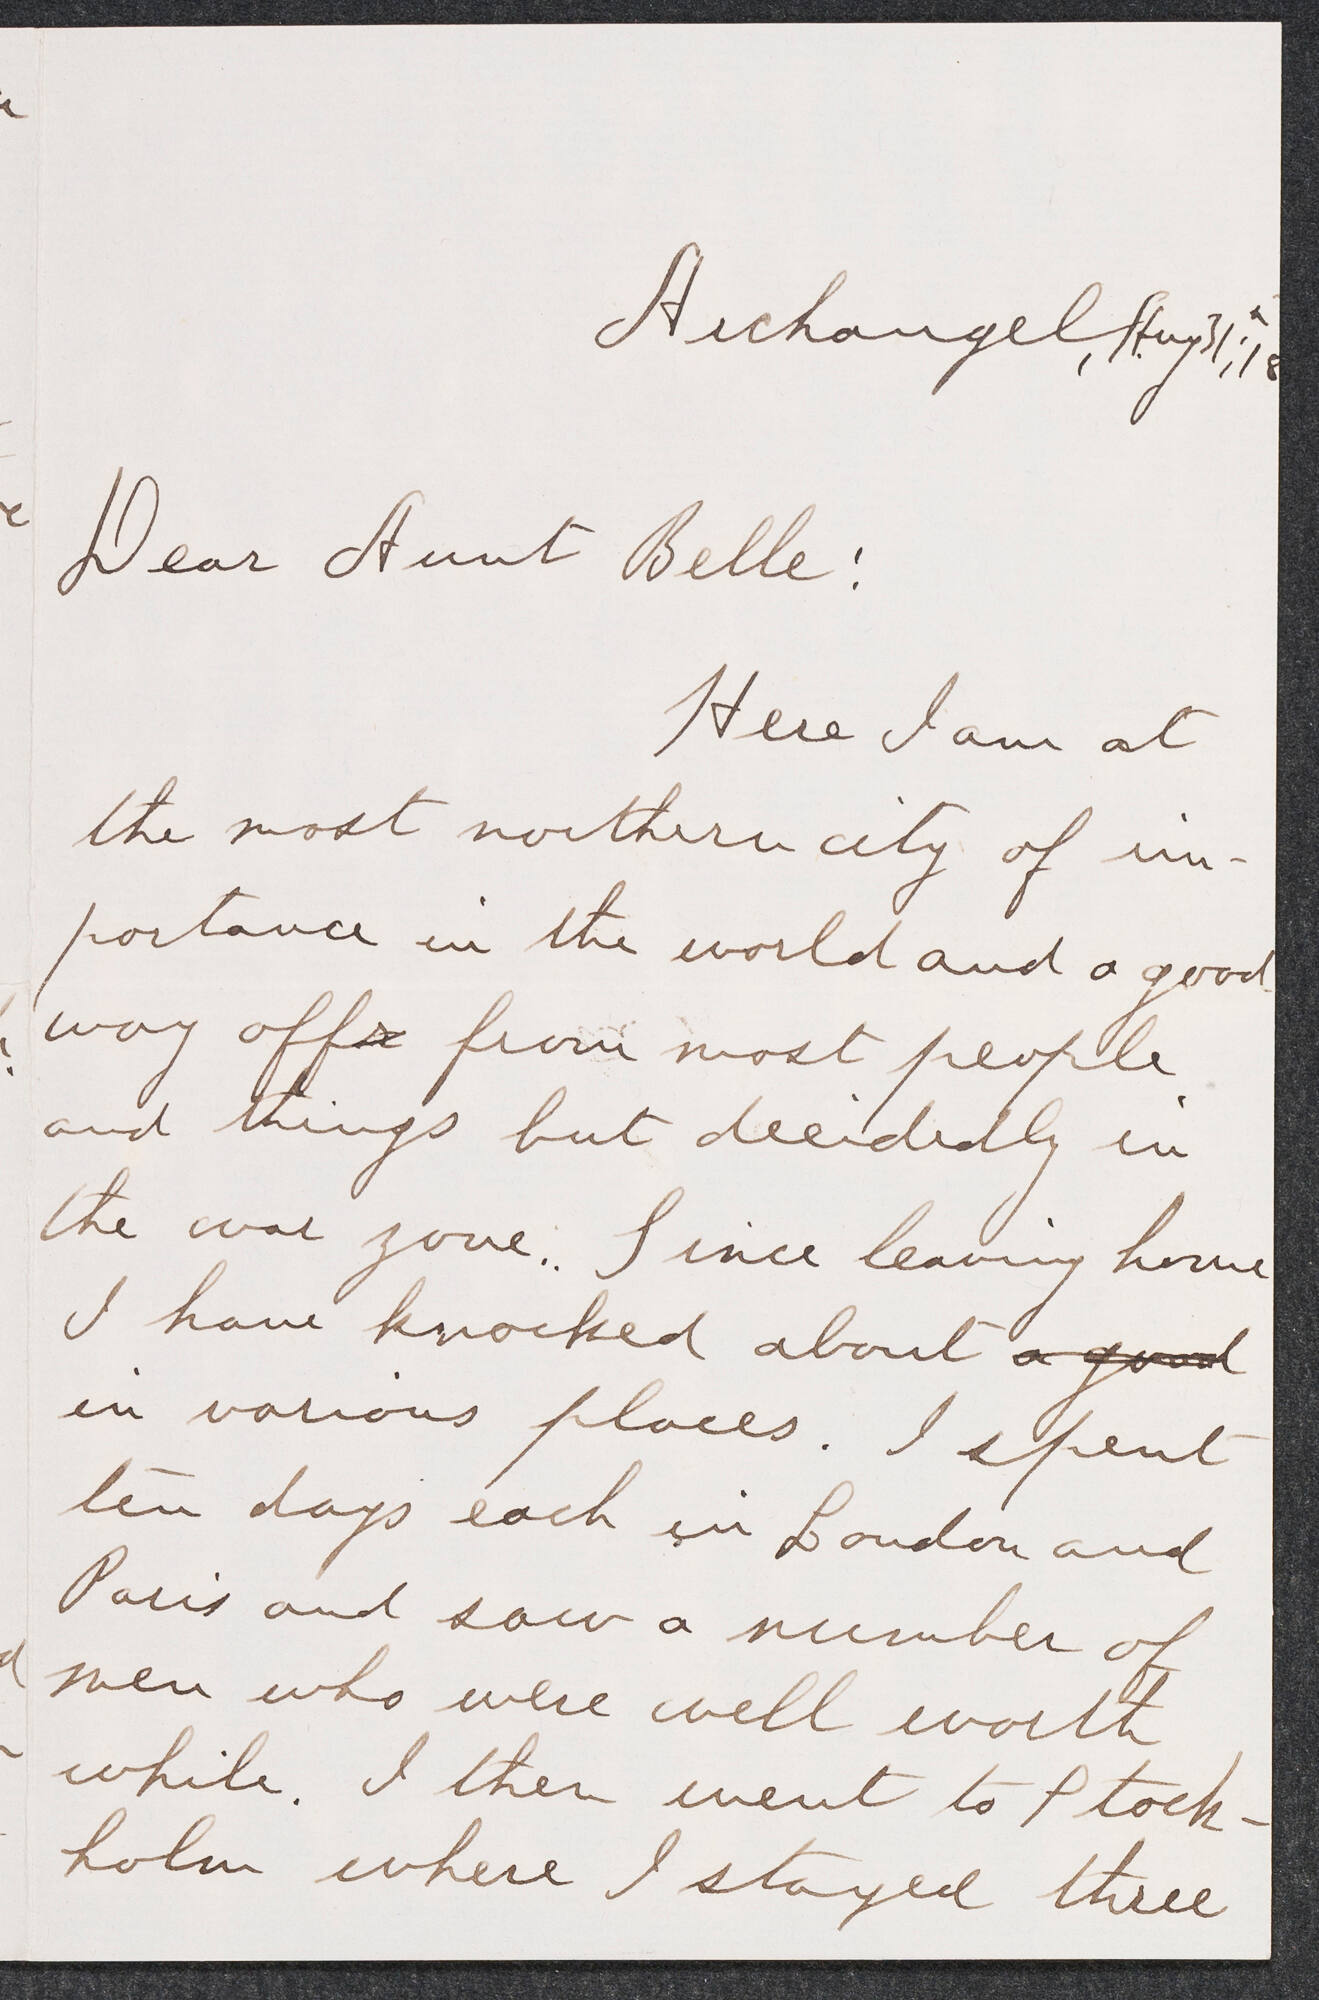 Archangel, Aug 31, '18
Dear Aunt Belle:
Here I am at
the most northern city of im-
portance in the world and a good
way off from most people
and things but decidedly in
the war zone. Since leaving home
I have knocked about a good
in various places. I spent
ten days each in London and
Paris and saw a number of
men who were well worth
while. I then went to Stock-
holm where I stayed three